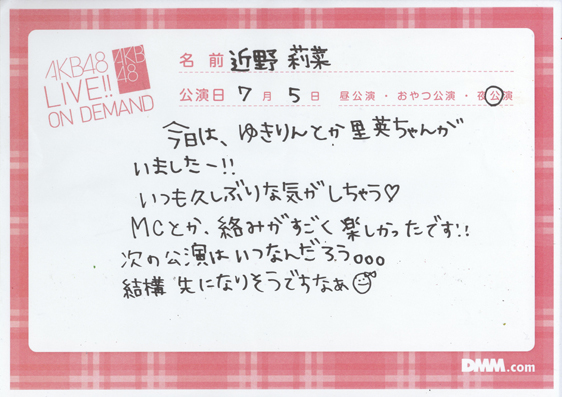 AKB48
LIVE!!
ON DEMAND
AKB
48
名前 近野 莉菜
公演日 7月5日 昼公演・おやつ公演・夜公演
今日は、ゆきりんとか里英ちゃんが
いましたー!!
いつも久しぶりな気がしちゃう♡
MCとか、絡みがすごく楽しかったです!!
次の公演はいつなんだろう。。。
結構先になりそうですなぁ
DMM.com